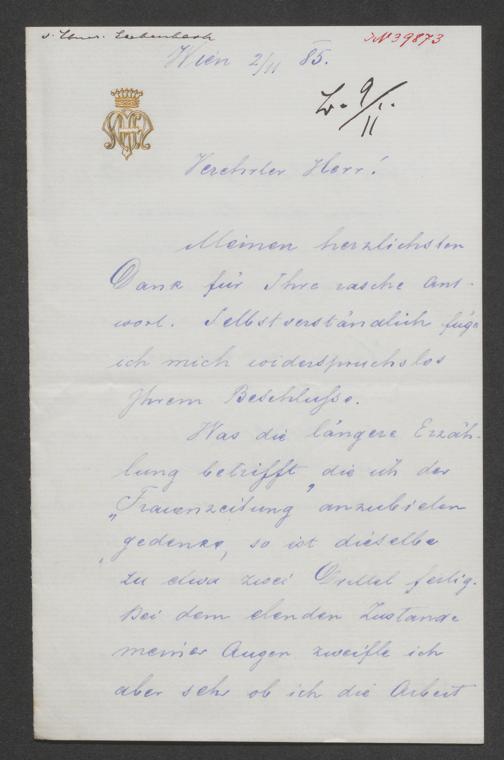 v. Ebner-Eschenbach
No 39873
Wien 2/11 85.
9/11
Verehrter Herr!
Meinen herzlichsten
Dank für Ihre rasche Ant-
wort. Selbstverständlich füge
ich mich widerspruchslos
Ihrem Beschluße.
Was die längere Erzäh-
lung betrifft, die ich der
„Frauenzeitung" anzubieten
gedenke, so ist dieselbe
zu etwa zwei Drittel fertig.
Bei dem elenden Zustande
meiner Augen zweifle ich
aber sehr ob ich die Arbeit